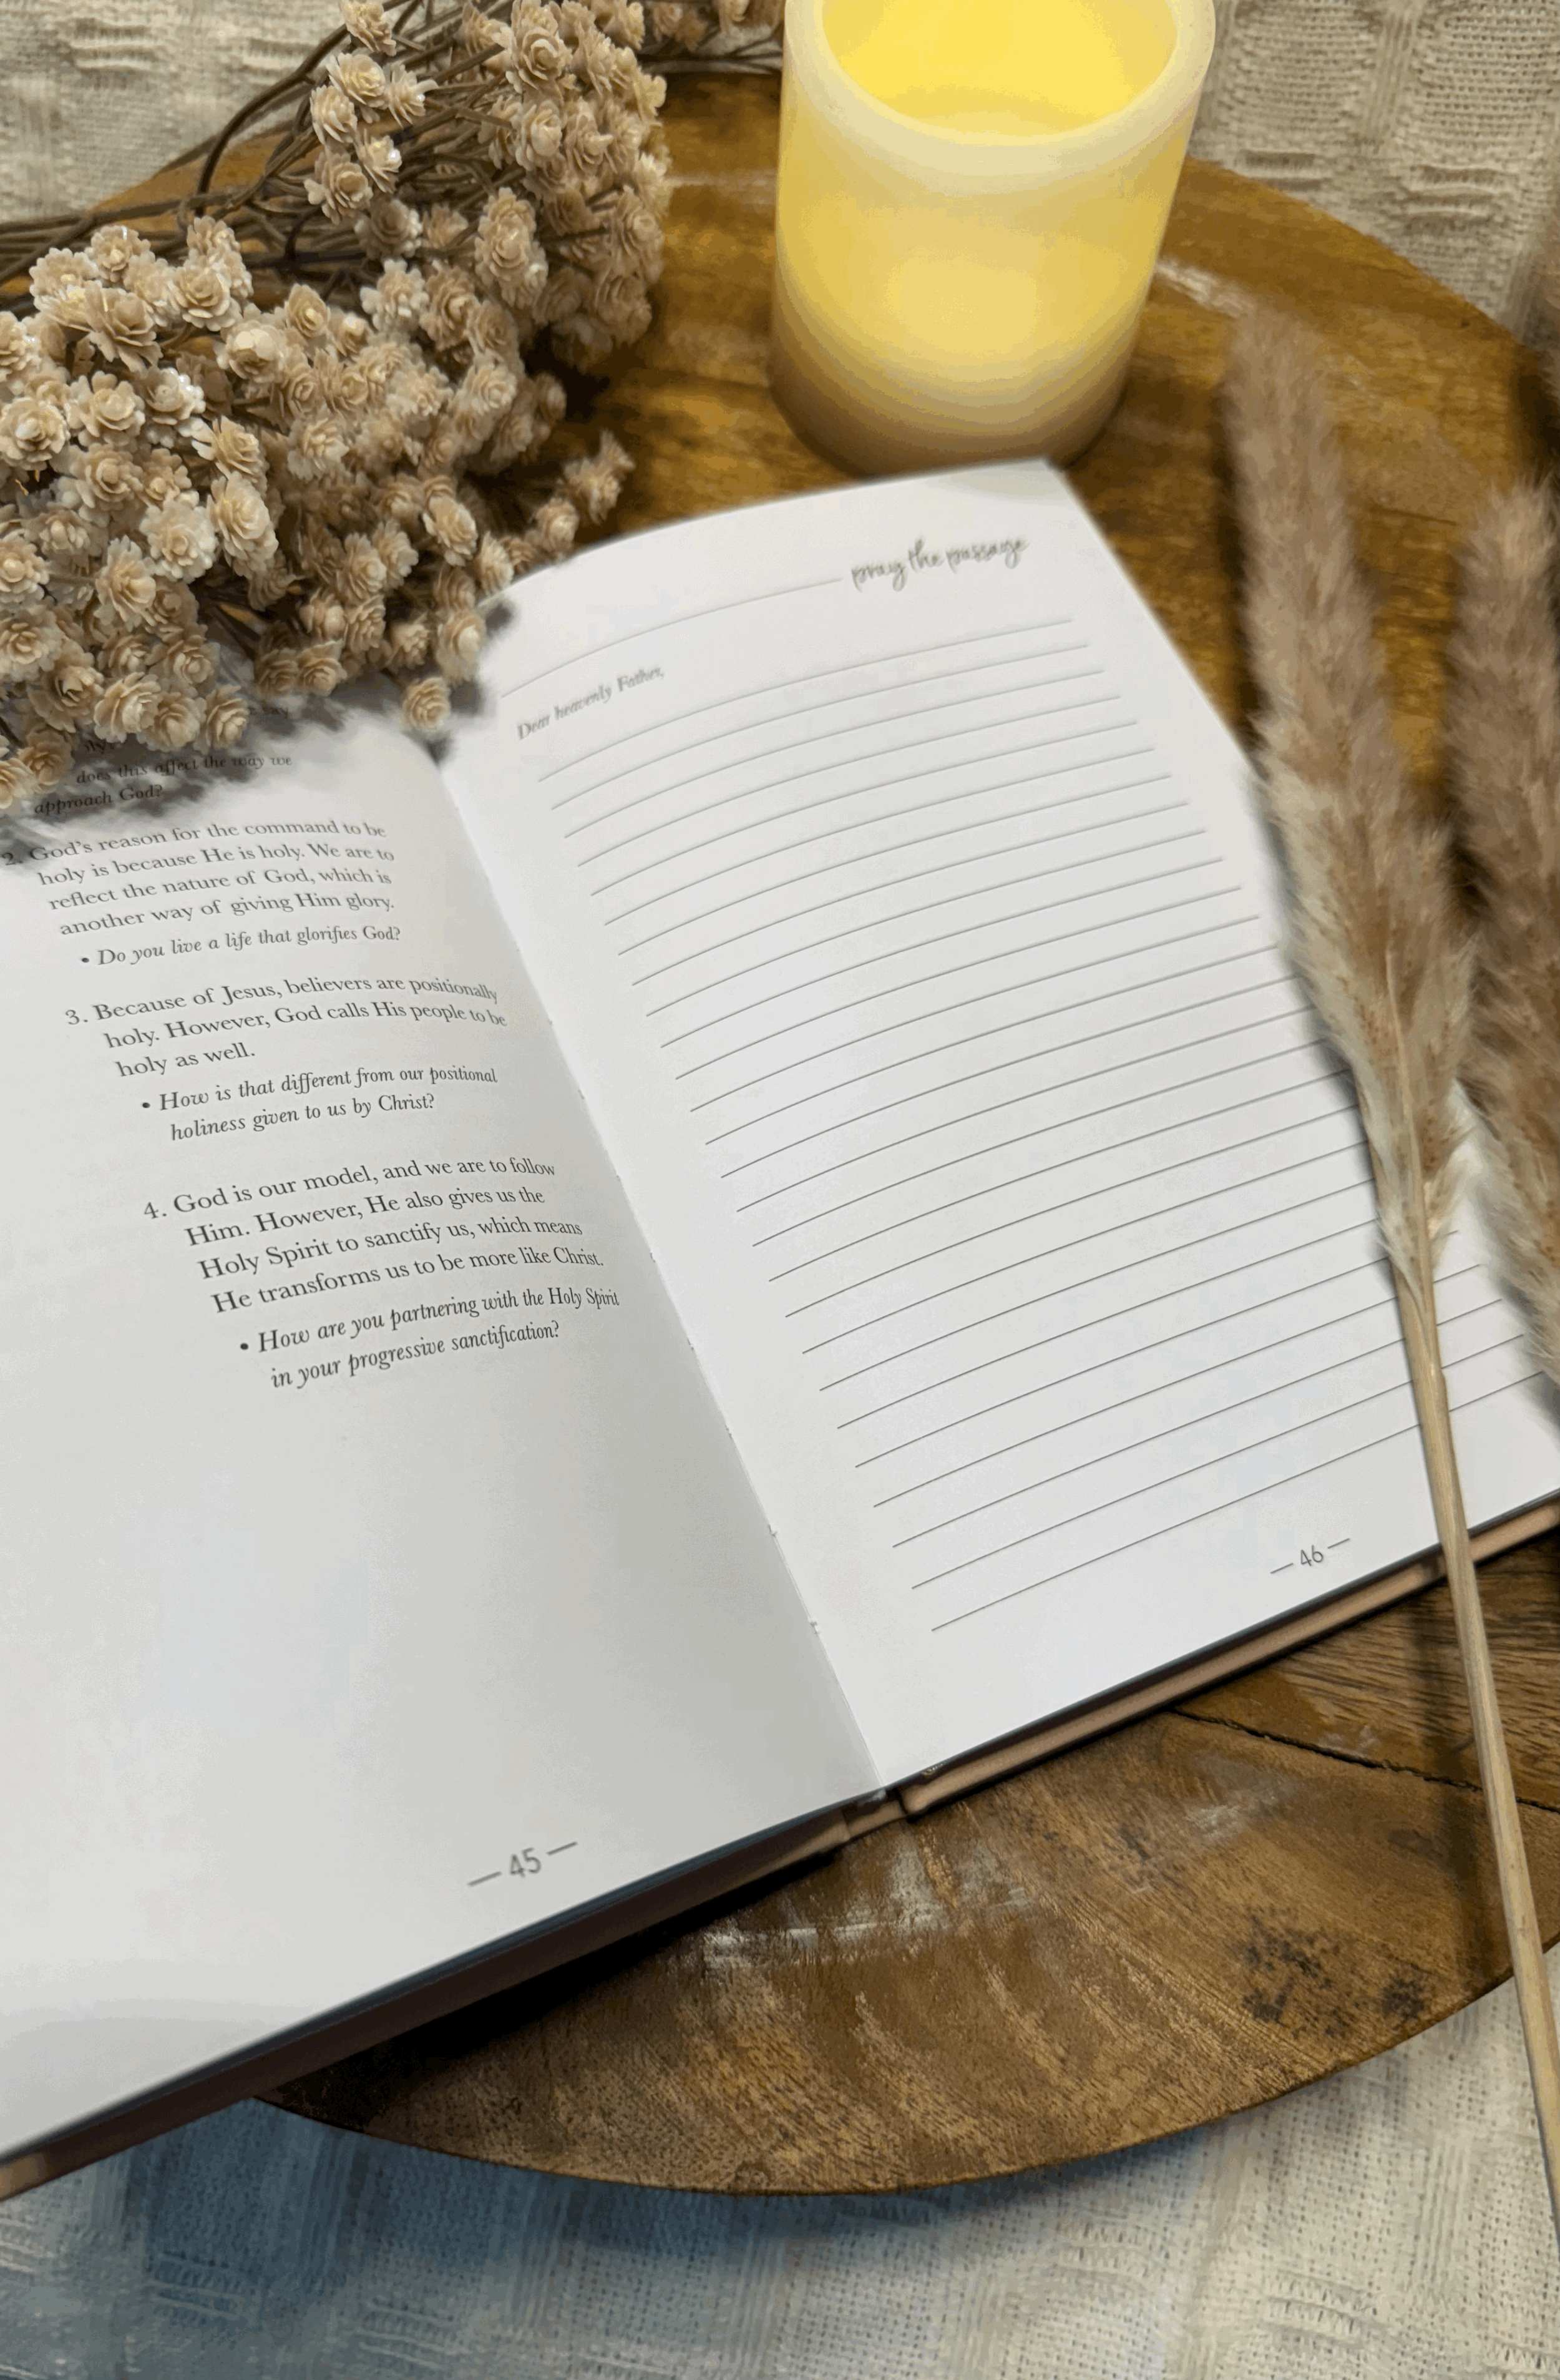 say
does this affect the way we
approach God?
2. God's reason for the command to be
holy is because He is holy. We are to
reflect the nature of God, which is
another way of giving Him glory.
• Do you live a life that glorifies God?
3. Because of Jesus, believers are positionally
holy. However, God calls His people to be
holy as well.
• How is that different from our positional
holiness given to us by Christ?
4. God is our model, and we are to follow
Him. However, He also gives us the
Holy Spirit to sanctify us, which means
He transforms us to be more like Christ.
• How are you partnering with the Holy Spirit
in your progressive sanctification?
— 45 —
pray the passage
Dear heavenly Father,
— 46 —